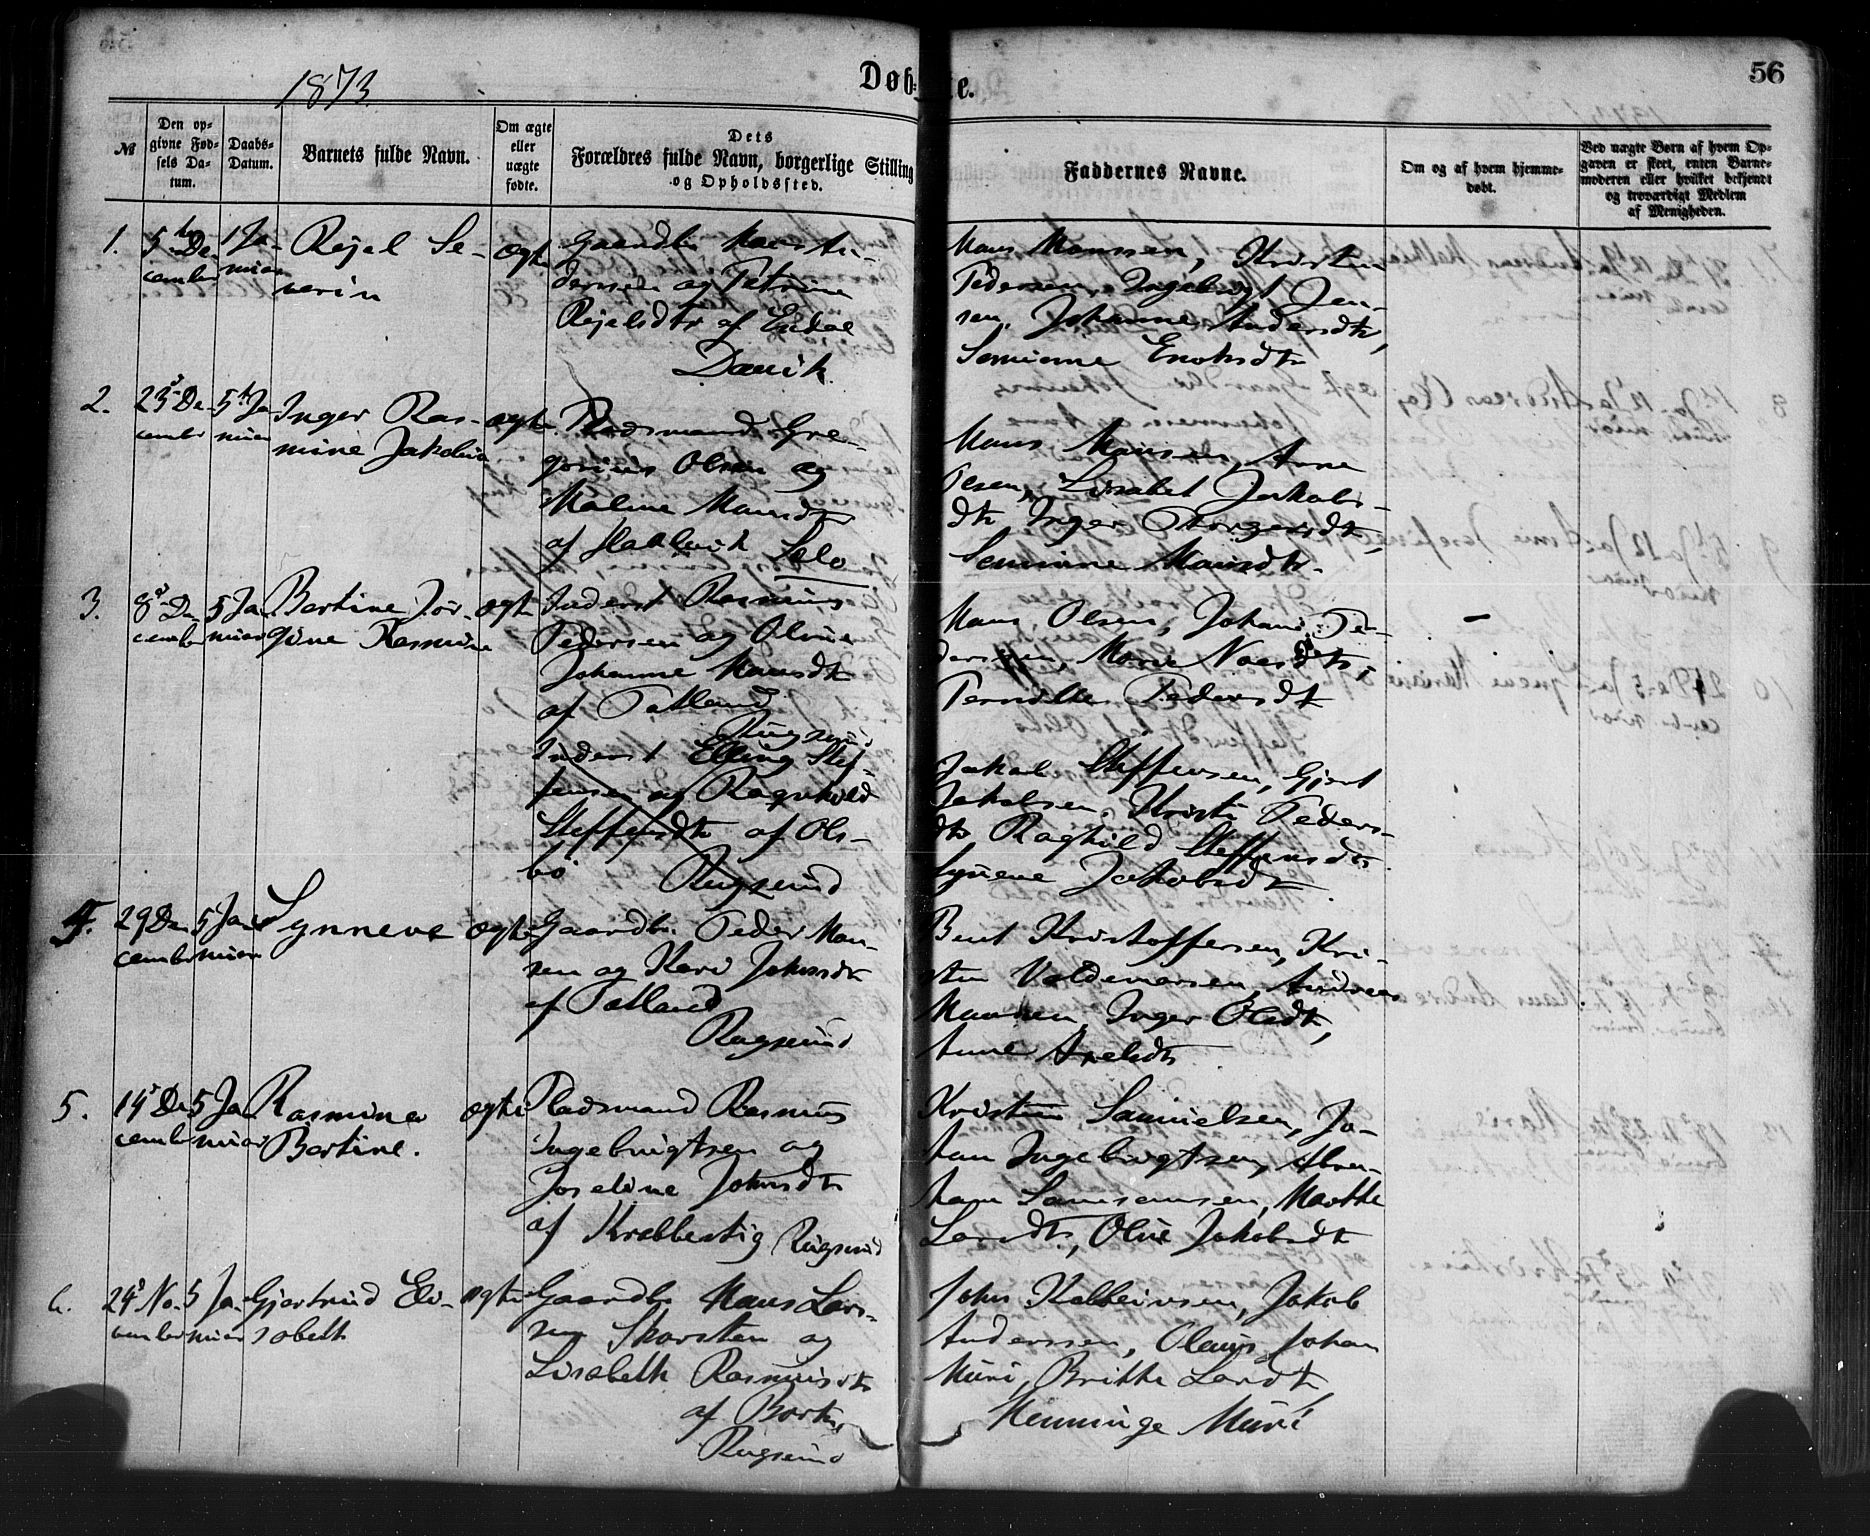 1873.
Døb-te.
56
№
Den op-
givne Fød-
sels Da-
tum.
Daabs-
Datum.
Barnets fulde Navn.
Om ægte
eller
uægte
fødte.
Dets
Forældres fulde Navn, borgerlige Stilling
og Opholdssted.
Faddernes Navne.
Om og af hvem hjemme-
døbt.
Ved uægte Børn af hvem Op-
gaven er skeet, enten Barne-
moderen eller hvilket bekjendt
og troværdigt Medlem
af Menigheden.
1.
5te De-
cember
1 Ja-
nuar
Rejel Se-
verin
ægte
Gaardbr. Mons An-
dersen og Petrine
Rejelsdtr af Endal
Davik
Mons Monssen, Kristen
Pedersen, Ingebrigt Jen-
sen, Johanne Andersdtr,
Enoksdtr
2.
23 De-
cember
5te Ja-
nuar
Inger Ras-
mine Jakobine
ægte
Pladsmand Gre-
gorius Olsen og
Maline Monsdtr
af
Selo
Mons Monsen, Arne
Olsen, Lisabet Jakobs-
dtr, Inger
Monsdtr.
3.
8 De-
cember
5 Ja-
nuar
Bertine Jør-
gine Rasmine
ægte
Inderst Rasmus
Pedersen og Oline
Johanne Monsdtr
af Totland
Rugsund
Mons Olsen, Johan Pe-
dersen, Marie
Pernille Pedersdtr
Inderst Elling Stef-
fensen og Ragnhild
Steffensdtr af Ols-
bø
Rugsund
Jakob Steffensen, Gjert
Jakobsen, Kristi Peders-
dtr Raghild Steffensdtr
Synneve Jakobsdtr
4.
29 De-
cember
5 Ja-
nuar
Synneve
ægte
Gaardbr. Peder Mon-
sen og Kari Johnsdtr
af Totland
Rugsund
Bent Kristoffersen, Kri-
sten Valdemarsen, Andreas
Monsen, Inger Olsdtr,
Anne Axelsdtr
5.
14 De-
cember
5 Ja-
nuar
Rasmine
Bertine.
ægte
Pladsmand Rasmus
Ingebrigtsen og
Joseline Johnsdtr
af Krabbestig Rugsund
Kristen Samuelsen, Jo-
han Ingebrigtsen, Abra-
ham Samsonsen, Marthe
Larsdtr, Oline Jakobsdtr
6.
24 No-
vember
5 Ja-
nuar
Gjertrud Eli-
sabeth
ægte
Gaardbr. Mons Lars-
sen Skorsten og
Lisabeth Rasmusdtr
af
Rugsund
John Kolbeinsen, Jakob
Anderssen, Olaus Johan
Muri, Britha Larsdtr,
Henninge Muri